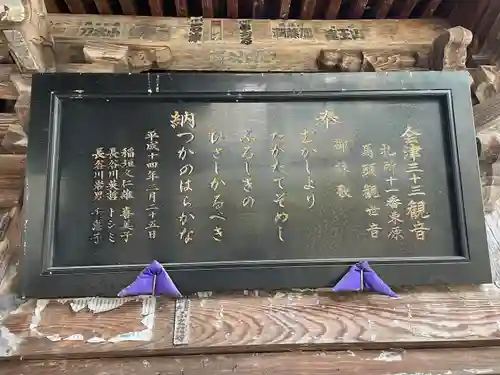 奉
納
会津三十三観音
札所十一番東原
馬頭観世音
御詠歌
むかしより
たがたてそめし
ふるしきの
ひざしかるべき
つかのはらかな
平成十四年三月二十五日
稲垣久仁雄 喜美子
長谷川英哲 トシミ
長谷川岩男 千恵子